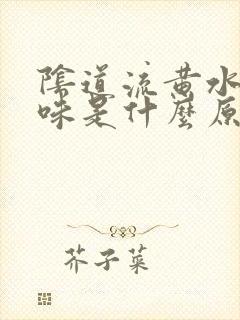 陰道流黄水
味是什麼原
芥子菜